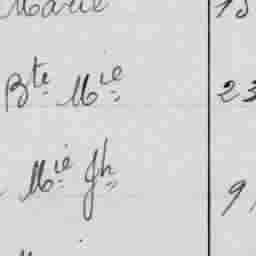 Marie 15
Bte Mie 23
Mie Jh 9